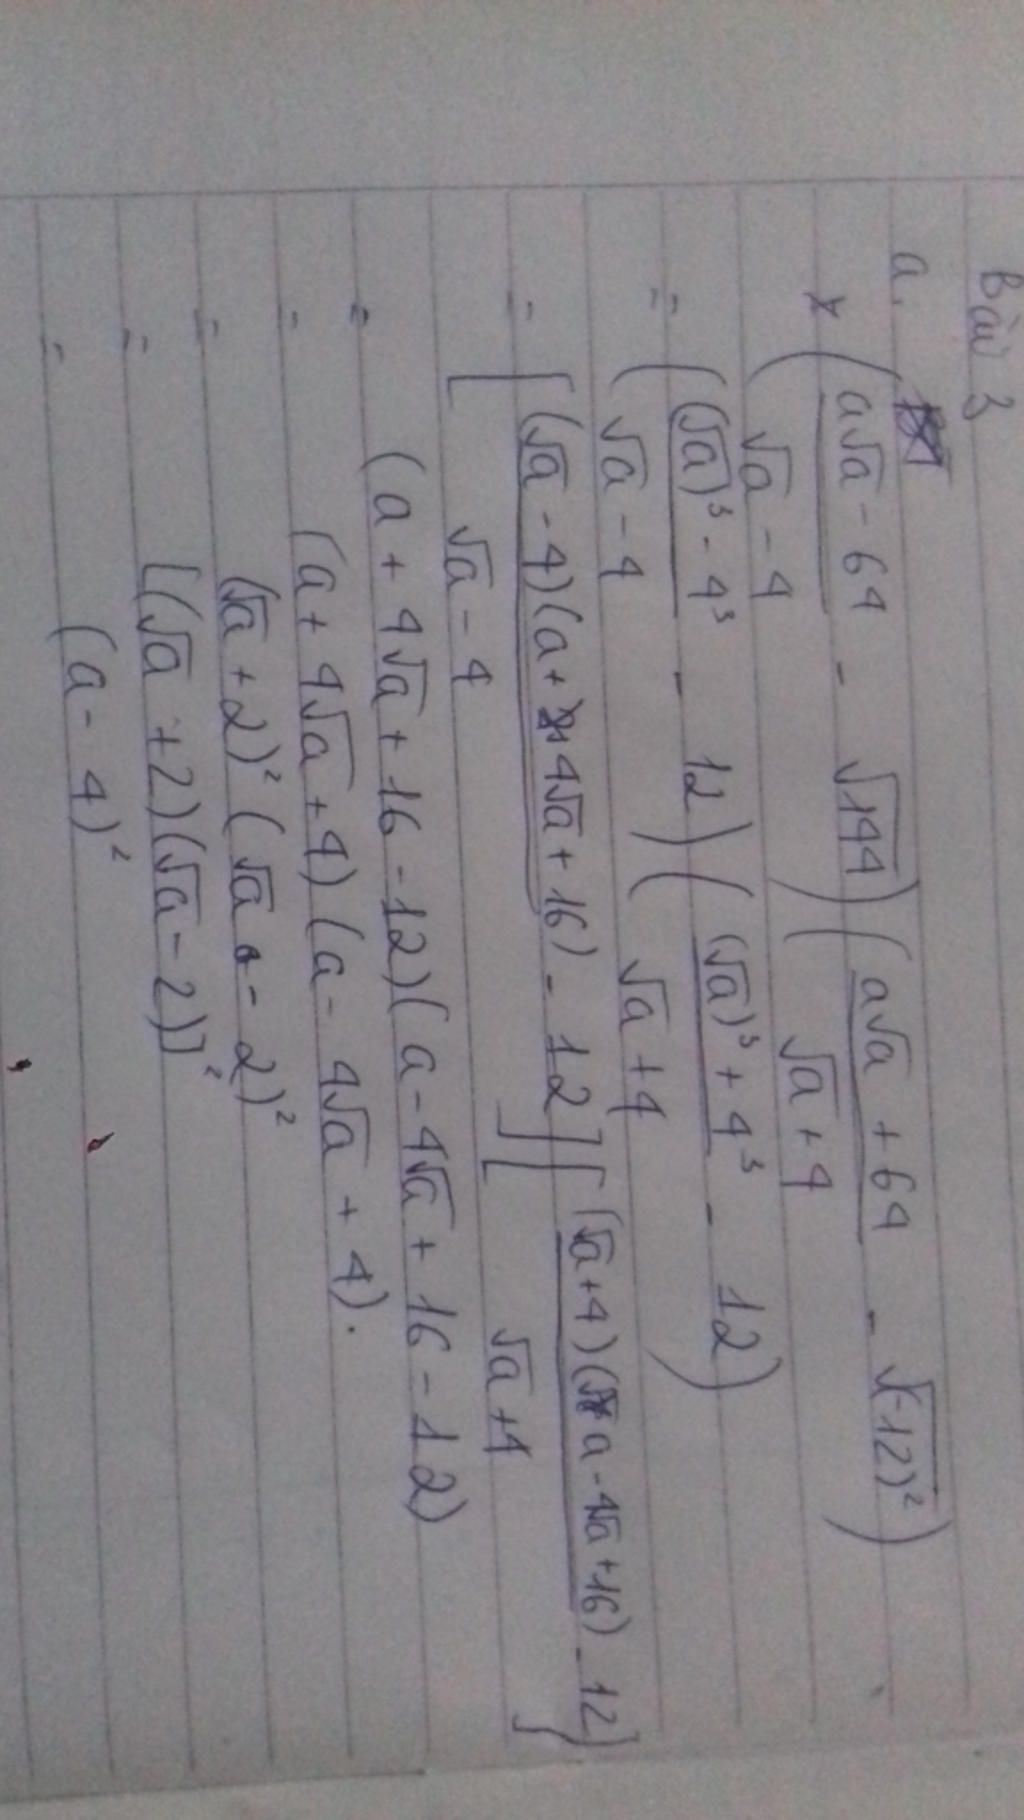 Bài 3
a,
* ( (a√a - 64)/(√a - 4) - √144 ) ( (a√a + 64)/(√a + 4) - √(-12)² )
= ( ((√a)³ - 4³)/(√a - 4) - 12 ) ( ((√a)³ + 4³)/(√a + 4) - 12 )
= [ (√a - 4)(a + 4√a + 16)/(√a - 4) - 12 ] [ (√a + 4)(a - 4√a + 16)/(√a + 4) - 12 ]
= (a + 4√a + 16 - 12)(a - 4√a + 16 - 12)
= (a + 4√a + 4)(a - 4√a + 4).
= (√a + 2)² (√a - 2)²
= [(√a + 2)(√a - 2)]²
= (a - 4)²